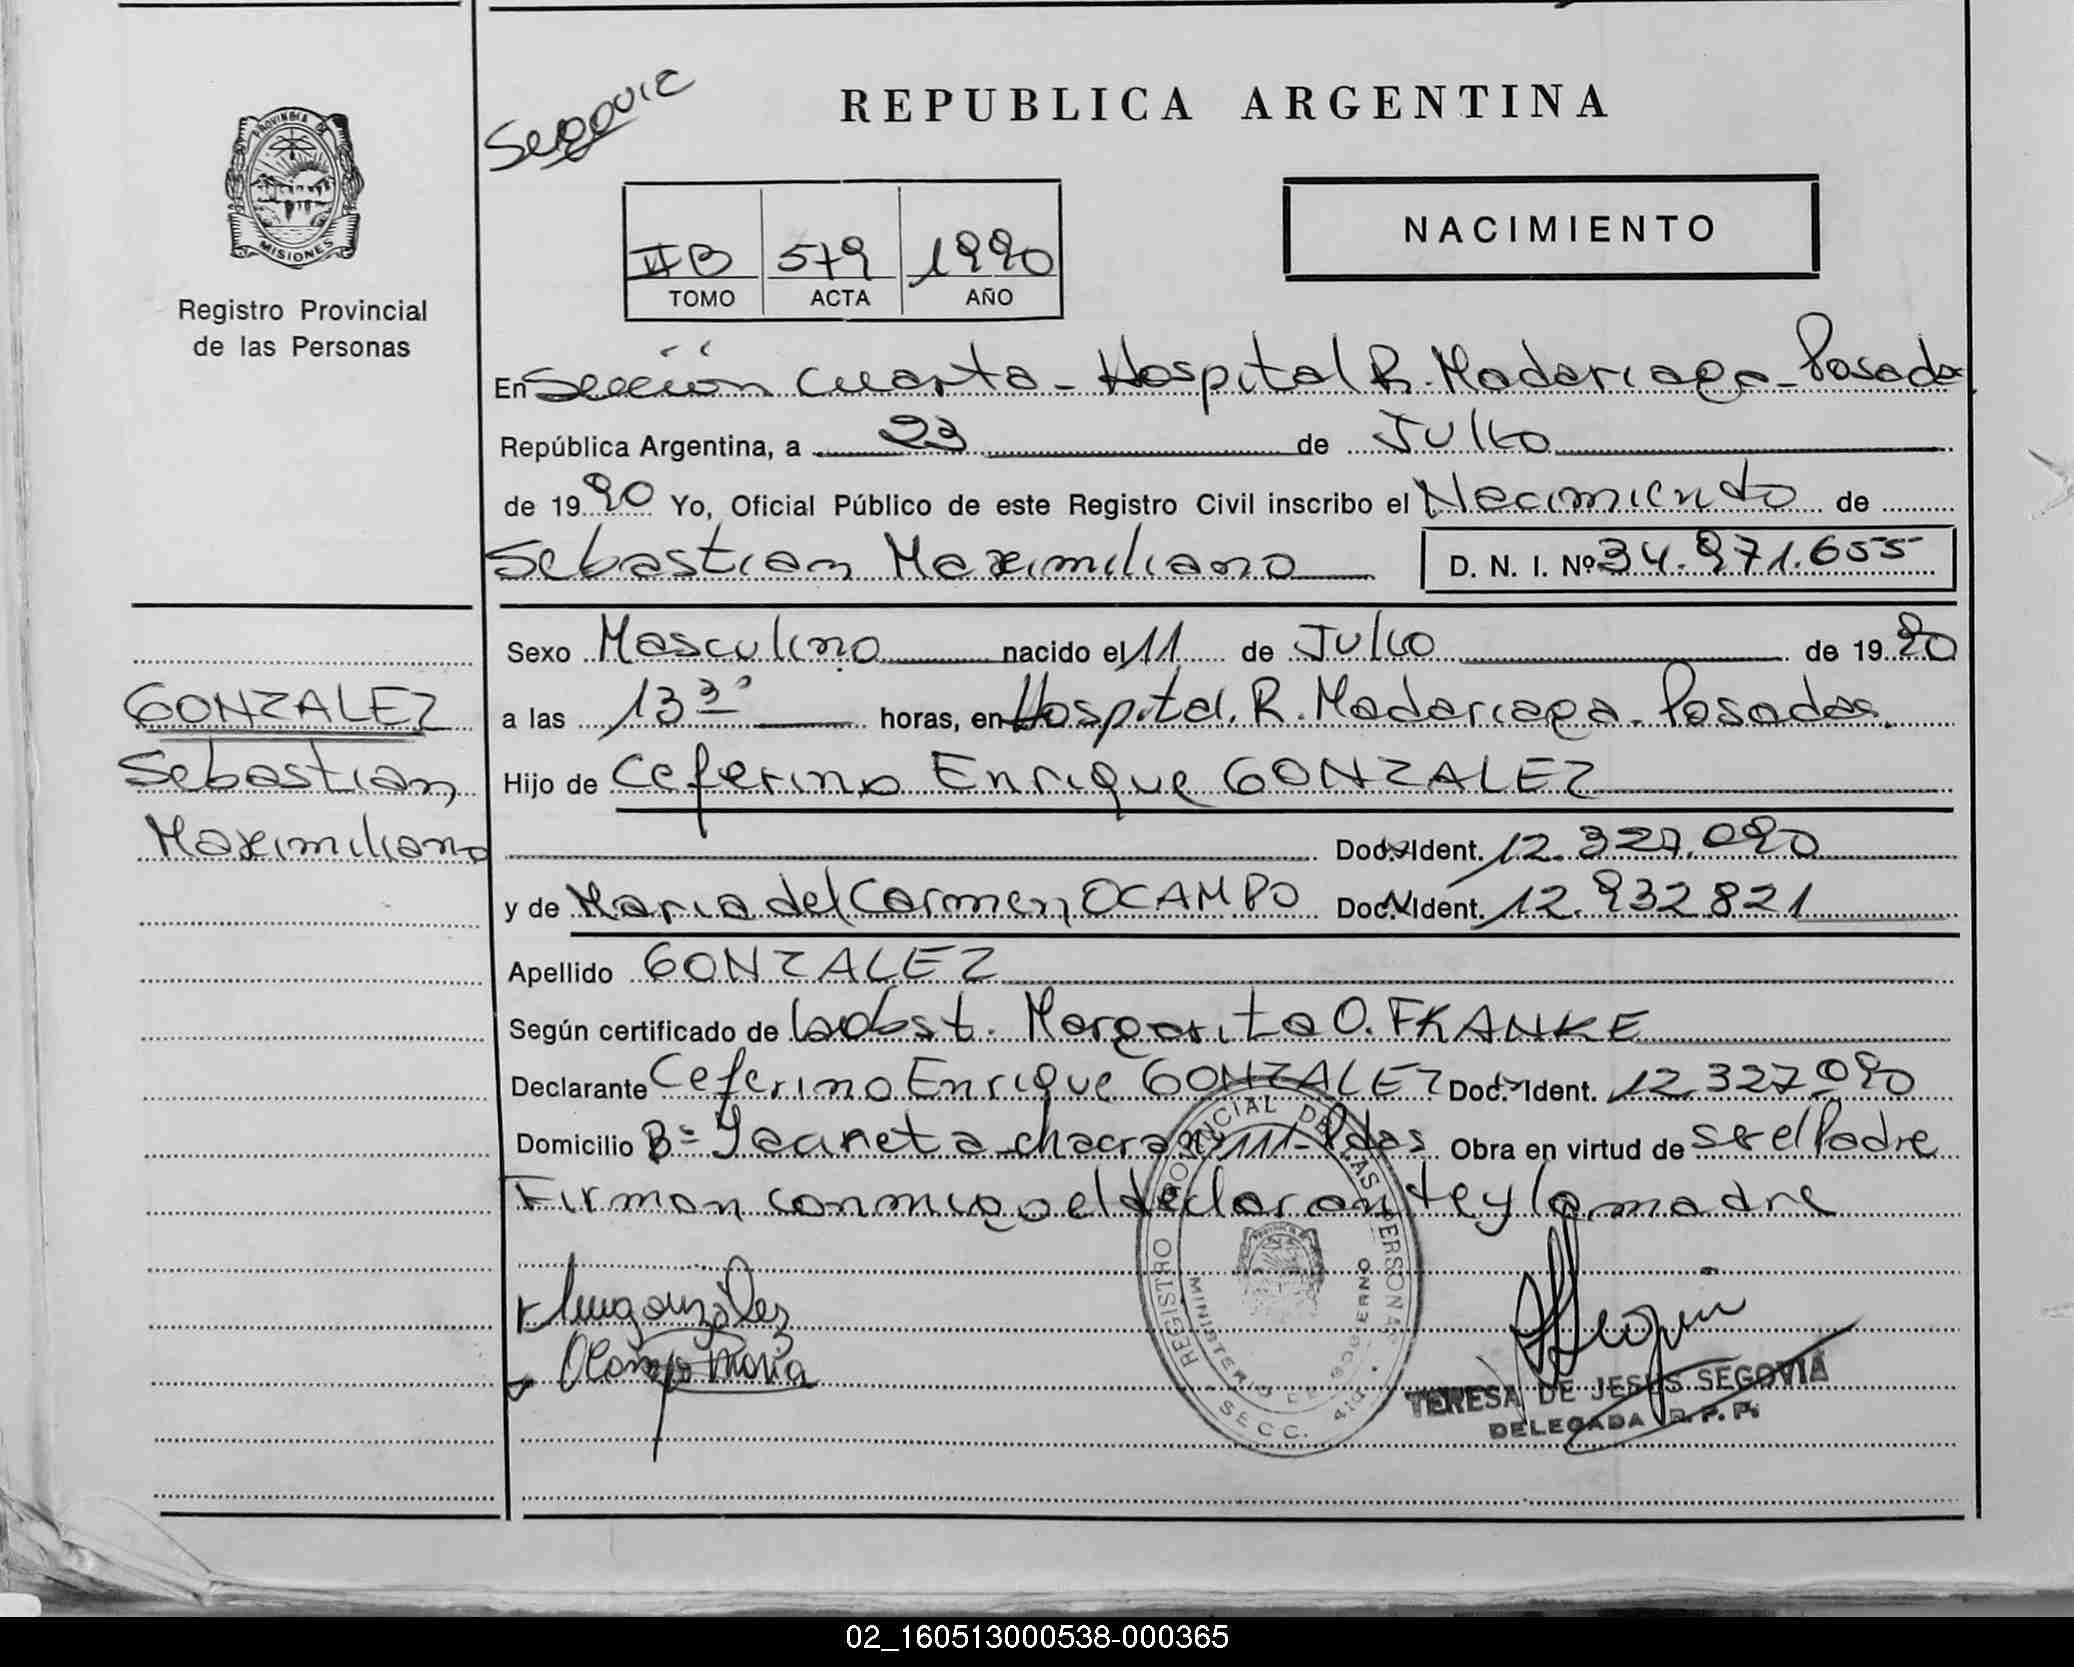 Segovia
REPUBLICA ARGENTINA
PROVINCIA DE
MISIONES
Registro Provincial
de las Personas
NACIMIENTO
II B 579 1990
TOMO ACTA AÑO
En Sección Cuarta - Hospital R. Madariaga - Posadas
República Argentina, a 23 de Julio
de 1990 Yo, Oficial Público de este Registro Civil inscribo el Nacimiento de
Sebastian Maximiliano D. N. I. Nº 34.971.655
Sexo Masculino nacido el 11 de Julio de 1990
a las 13 30 horas, en Hospital. R. Madariaga - Posadas.
GONZALEZ
Sebastian
Maximiliano
Hijo de Ceferino Enrique GONZALEZ
Doc. Ident. 12.327.090
y de Maria del Carmen OCAMPO Doc. Ident. 12.932.821
Apellido GONZALEZ
Según certificado de la obst. Margarita O. FRANKE
Declarante Ceferino Enrique GONZALEZ Doc. Ident. 12.327.090
Domicilio Bº Yacireta chacra 111 - Pdas Obra en virtud de ser el Padre
Firman conmigo el declarante y la madre
REGISTRO PROVINCIAL DE LAS PERSONAS
MINISTERIO DE GOBIERNO
SECC.
Ocampo Maria
TERESA DE JESUS SEGOVIA
DELEGADA R. P. P.
02_160513000538-000365